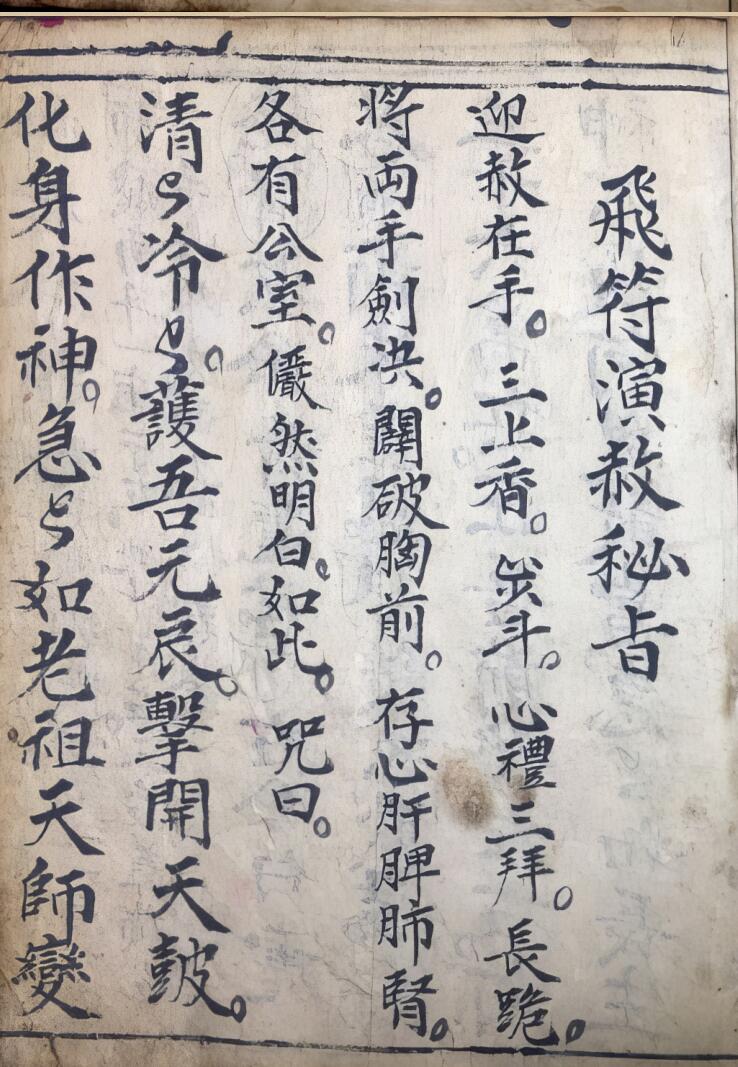 飛符演赦秘旨
迎赦在手。三上香。步斗。心禮三拜。長跪。
将両手劍决。闢破胸前。存心肝脾肺腎。
各有公室。儼然明白。如此。咒曰。
清々冷々。護吾元辰。擊開天皷。
化身作神。急々如老祖天師變